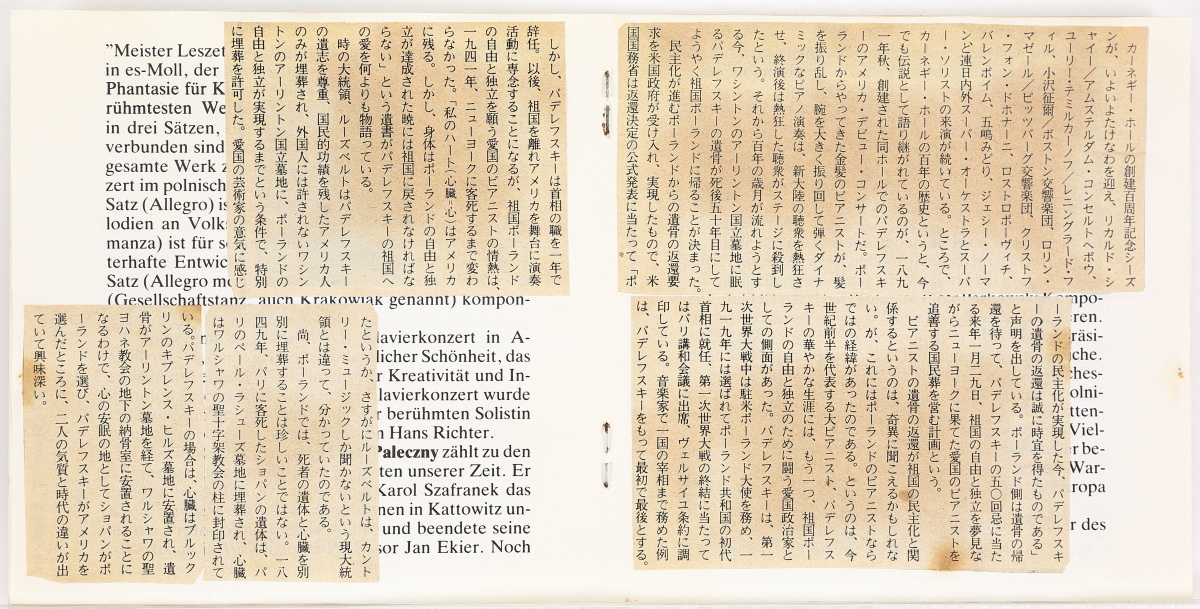 カーネギー・ホールの創建百周年記念シーズ
ンが、いよいよたけなわを迎え、リカルド・シ
ャイー／アムステルダム・コンセルトヘボウ、
ユーリー・テミルカーノフ／レニングラード・フ
ィル、小沢征爾／ボストン交響楽団、ロリン・
マゼール／ピッツバーグ交響楽団、クリストフ
・フォン・ドホナーニ、ロストロポーヴィチ、
バレンボイム、五嶋みどり、ジェシー・ノーマ
ンど連日内外スーパー・オーケストラとスーパ
ー・ソリストの来演が続いている。ところで、
カーネギー・ホールの百年の歴史というと、今
でも伝説として語り継がれているのが、一八九
一年秋、創建された同ホールでのパデレフスキ
ーのアメリカ・デビュー・コンサートだ。ポー
ランドからやってきた金髪のピアニストが、髪
を振り乱し、腕を大きく振り回して弾くダイナ
ミックなピアノ演奏は、新大陸の聴衆を熱狂さ
せ、終演後は熱狂した聴衆がステージに殺到し
たという。それから百年の歳月が流れようとす
る今、ワシントンのアーリントン国立墓地に眠
るパデレフスキーの遺骨が死後五十年目にして
ようやく祖国ポーランドに帰ることが決まった。
民主化が進むポーランドからの遺骨の返還要
求を米国政府が受け入れ、実現したもので、米
国国務省は返還決定の公式発表に当たって「ポ
ーランドの民主化が実現した今、パデレフスキ
ーの遺骨の返還は誠に時宜を得たものである」
と声明を出している。ポーランド側は遺骨の帰
還を待って、パデレフスキーの五〇回忌に当た
る来年一月二九日、祖国の自由と独立を夢見な
がらニューヨークに果てた愛国のピアニストを
追善する国民葬を営む計画という。
ピアニストの遺骨の返還が祖国の民主化と関
係するというのは、奇異に聞こえるかもしれな
い。が、これにはポーランドのピアニストなら
ではの経緯があったのである。というのは、今
世紀前半を代表する大ピアニスト、パデレフス
キーの華やかな生涯には、もう一つ、祖国ポー
ランドの自由と独立のために闘う愛国政治家と
しての側面があった。パデレフスキーは、第一
次世界大戦中は駐米ポーランド大使を務め、一
九一九年には選ばれてポーランド共和国の初代
首相に就任、第一次世界大戦の終結に当たって
はパリ講和会議に出席、ヴェルサイユ条約に調
印している。音楽家で一国の宰相まで務めた例
は、パデレフスキーをもって最初で最後とする。
しかし、パデレフスキーは首相の職を一年で
辞任。以後、祖国を離れアメリカを舞台に演奏
活動に専念することになるが、祖国ポーランド
の自由と独立を願う愛国のピアニストの情熱は、
一九四一年、ニューヨークに客死するまで変わ
らなかった。「私のハート（心臓＝心）はアメリカ
に残る。しかし、身体はポーランドの自由と独
立が達成された暁には祖国に戻されなければな
らない」という遺書がパデレフスキーの祖国へ
の愛を何よりも物語っている。
時の大統領、ルーズベルトはパデレフスキー
の遺志を尊重、国民的功績を残したアメリカ人
のみが埋葬され、外国人には許されないワシン
トンのアーリントン国立墓地に、ポーランドの
自由と独立が実現するまでという条件で、特別
に埋葬を許可した。愛国の芸術家の意気に感じ
たというか、さすがにルーズベルトは、カント
リー・ミュージックしか聞かないという現大統
領とは違って、分かっていたのである。
尚、ポーランドでは、死者の遺体と心臓を別
別に埋葬することは珍しいことではない。一八
四九年、パリに客死したショパンの遺体は、パ
リのペール・ラシューズ墓地に埋葬され、心臓
はワルシャワの聖十字架教会の柱に封印されて
いる。パデレフスキーの場合は、心臓はブルック
リンのキプレンス・ヒルズ墓地に安置され、遺
骨がアーリントン墓地を経て、ワルシャワの聖
ヨハネ教会の地下の納骨室に安置されることに
なるわけで、心の安眠の地としてショパンがポ
ーランドを選び、パデレフスキーがアメリカを
選んだところに、二人の気質と時代の違いが出
ていて興味深い。
"Meister Leszet
in es-Moll, der
Phantasie für K
rühmtesten We
in drei Sätzen,
verbunden sind
gesamte Werk z
zert im polnisch
Satz (Allegro) is
lodien an Volks
manza) ist für se
terhafte Entwic
Satz (Allegro mo
(Gesellschaftstanz, auch Krakowiak genannt) kompon-
lavierkonzert in A-
licher Schönheit, das
r Kreativität und In-
lavierkonzert wurde
r berühmten Solistin
n Hans Richter.
Paleczny zählt zu den
ten unserer Zeit. Er
Karol Szafranek das
nen in Kattowitz un-
und beendete seine
sor Jan Ekier. Noch
Kompo-
ren.
räsi-
che.
ches-
olni-
tten-
Viel-
r be-
War-
ropa
r des